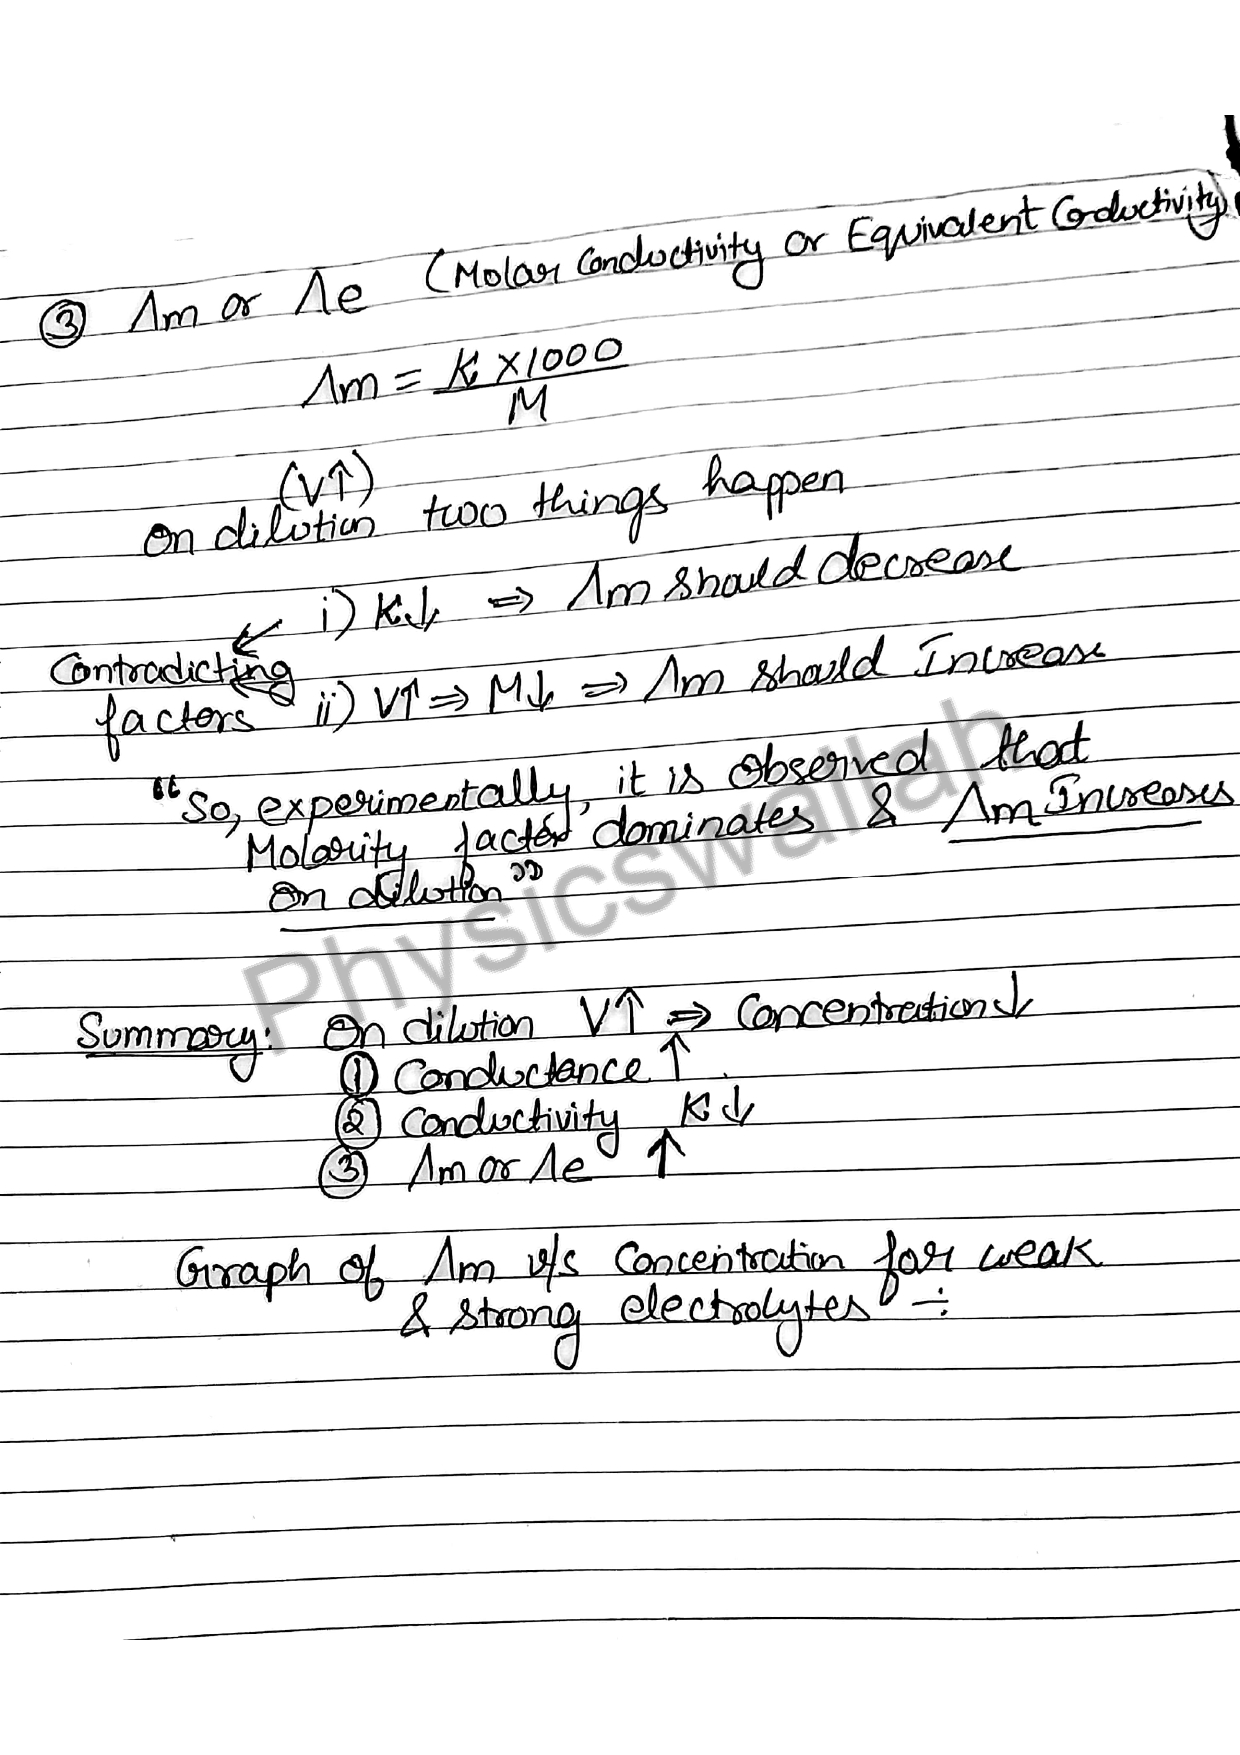 ③ Λm or Λe (Molar Conductivity or Equivalent Conductivity)
Λm = K × 1000
M
(V↑)
On dilution two things happen
i) K↓ ⇒ Λm should decrease
Contradicting
factors ii) V↑ ⇒ M↓ ⇒ Λm should Increase
"So, experimentally, it is observed that
Molarity factor dominates & Λm Increases
on dilution"
Physicswallah
Summary: On dilution V↑ ⇒ Concentration↓
① Conductance ↑
② Conductivity K↓
③ Λm or Λe ↑
Graph of Λm v/s Concentration for weak
& strong electrolytes ÷